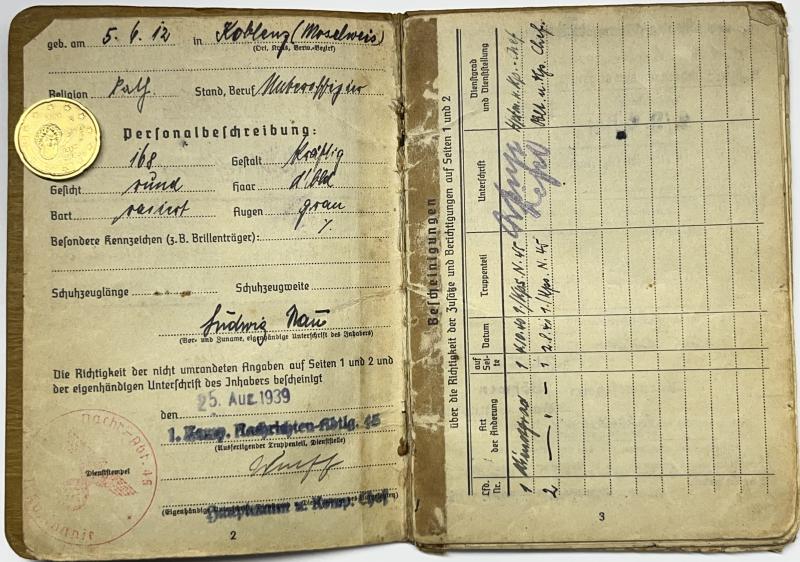 geb. am 5. 6. 12 in Koblenz (Moselweis)
(Ort, Kreis, Verw.-Bezirk)
Religion kath. Stand, Beruf Unteroffizier
Personalbeschreibung:
168 Gestalt kräftig
Gesicht rund Haar d'bld
Bart rasiert Augen grau
Besondere Kennzeichen (z. B. Brillenträger):
Schuhzeuglänge Schuhzeugweite
Ludwig Nau
(Vor- und Zuname, eigenhändige Unterschrift des Inhabers)
Die Richtigkeit der nicht umrandeten Angaben auf Seiten 1 und 2 und
der eigenhändigen Unterschrift des Inhabers bescheinigt
den 25. Aug. 1939
1. Komp. Nachrichten-Abtlg. 45
(Ausfertigender Truppenteil, Dienststelle)
Nachr.-Abt. 45
Dienststempel
Hauptmann u. Komp. Chef
2
Bescheinigungen
über die Richtigkeit der Zusätze und Berichtigungen auf Seiten 1 und 2
Lfd. Nr.
Art der Änderung
auf Seite
Datum
Truppenteil
Unterschrift
Dienstgrad und Dienststellung
1 Dienstgrad 1 1/Kps. N. 45
2 — " — 1 2.8.41 1/Kps. N. 45 Oblt. u. Kp. Chef.
3